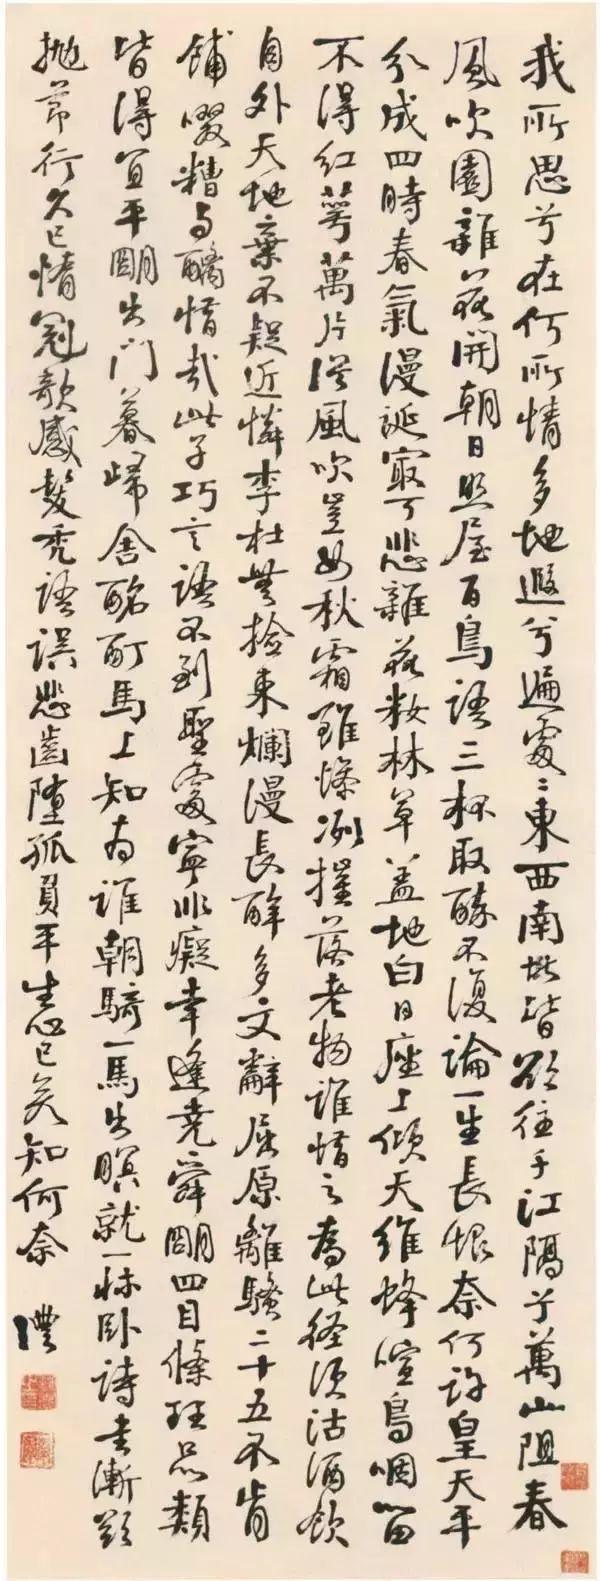 我所思兮在何所情多地遐兮遍處〻東西南北皆欲往千江隔兮萬山阻春
風吹園雜花開朝日照屋百鳥語三杯取醉不復論一生長恨奈何許皇天平
分成四時春氣漫誕最可悲雜花妝林草蓋地白日座上傾天維蜂喧鳥咽留
不得紅萼萬片從風吹豈如秋霜雖慘冽摧落老物誰惜之為此徑須沽酒飲
自外天地棄不疑近憐李杜無檢束爛漫長醉多文辭屈原離騷二十五不肯
餔啜糟與醨惜哉此子巧言語不到聖處寧非癡幸逢堯舜明四目條理品類
皆得宜平明出門暮歸舍酩酊馬上知為誰朝騎一馬出暝就一牀卧詩書漸欲
拋節行久已惰冠欹感髮禿語誤悲齒墮孤負平生心已矣知何奈